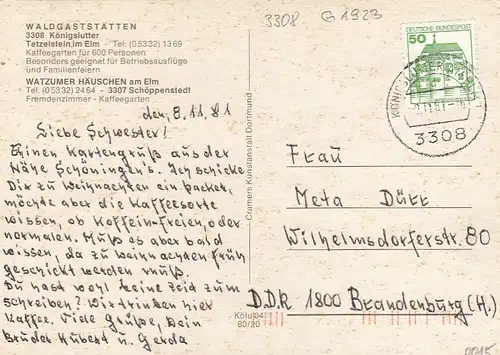 WALDGASTSTÄTTEN
3308 Königslutter
Tetzelstein im Elm - Tel: (05332) 1369
Kaffeegarten für 600 Personen
Besonders geeignet für Betriebsausflüge
und Familienfeiern
WATZUMER HÄUSCHEN am Elm
Tel. (05332) 2464 - 3307 Schöppenstedt
Fremdenzimmer - Kaffeegarten
3308 G1923
DEUTSCHE BUNDESPOST
50
3308
den, 8.11.81
Liebe Schwester!
Einen Kartengruß aus der
Nähe Schöningen's. Ich schicke
Dir zu Weihnachten ein Packet,
möchte aber die Kaffeesorte
wissen, ob Koffein-freien, oder
normalen. Muß es aber bald
wissen, da zu Weihnachten früh
geschickt werden muß.
Du hast wohl keine Zeid zum
schreiben? Wir trinken hier
Kaffee. Viele Grüße, Dein
Bruder Hubert u. Gerda
Cramers Kunstanstalt Dortmund
Frau
Meta Dürr
Wilhelmsdorferstr. 80
DDR 1800 Brandenburg (H.)
Kölu 94
80/20